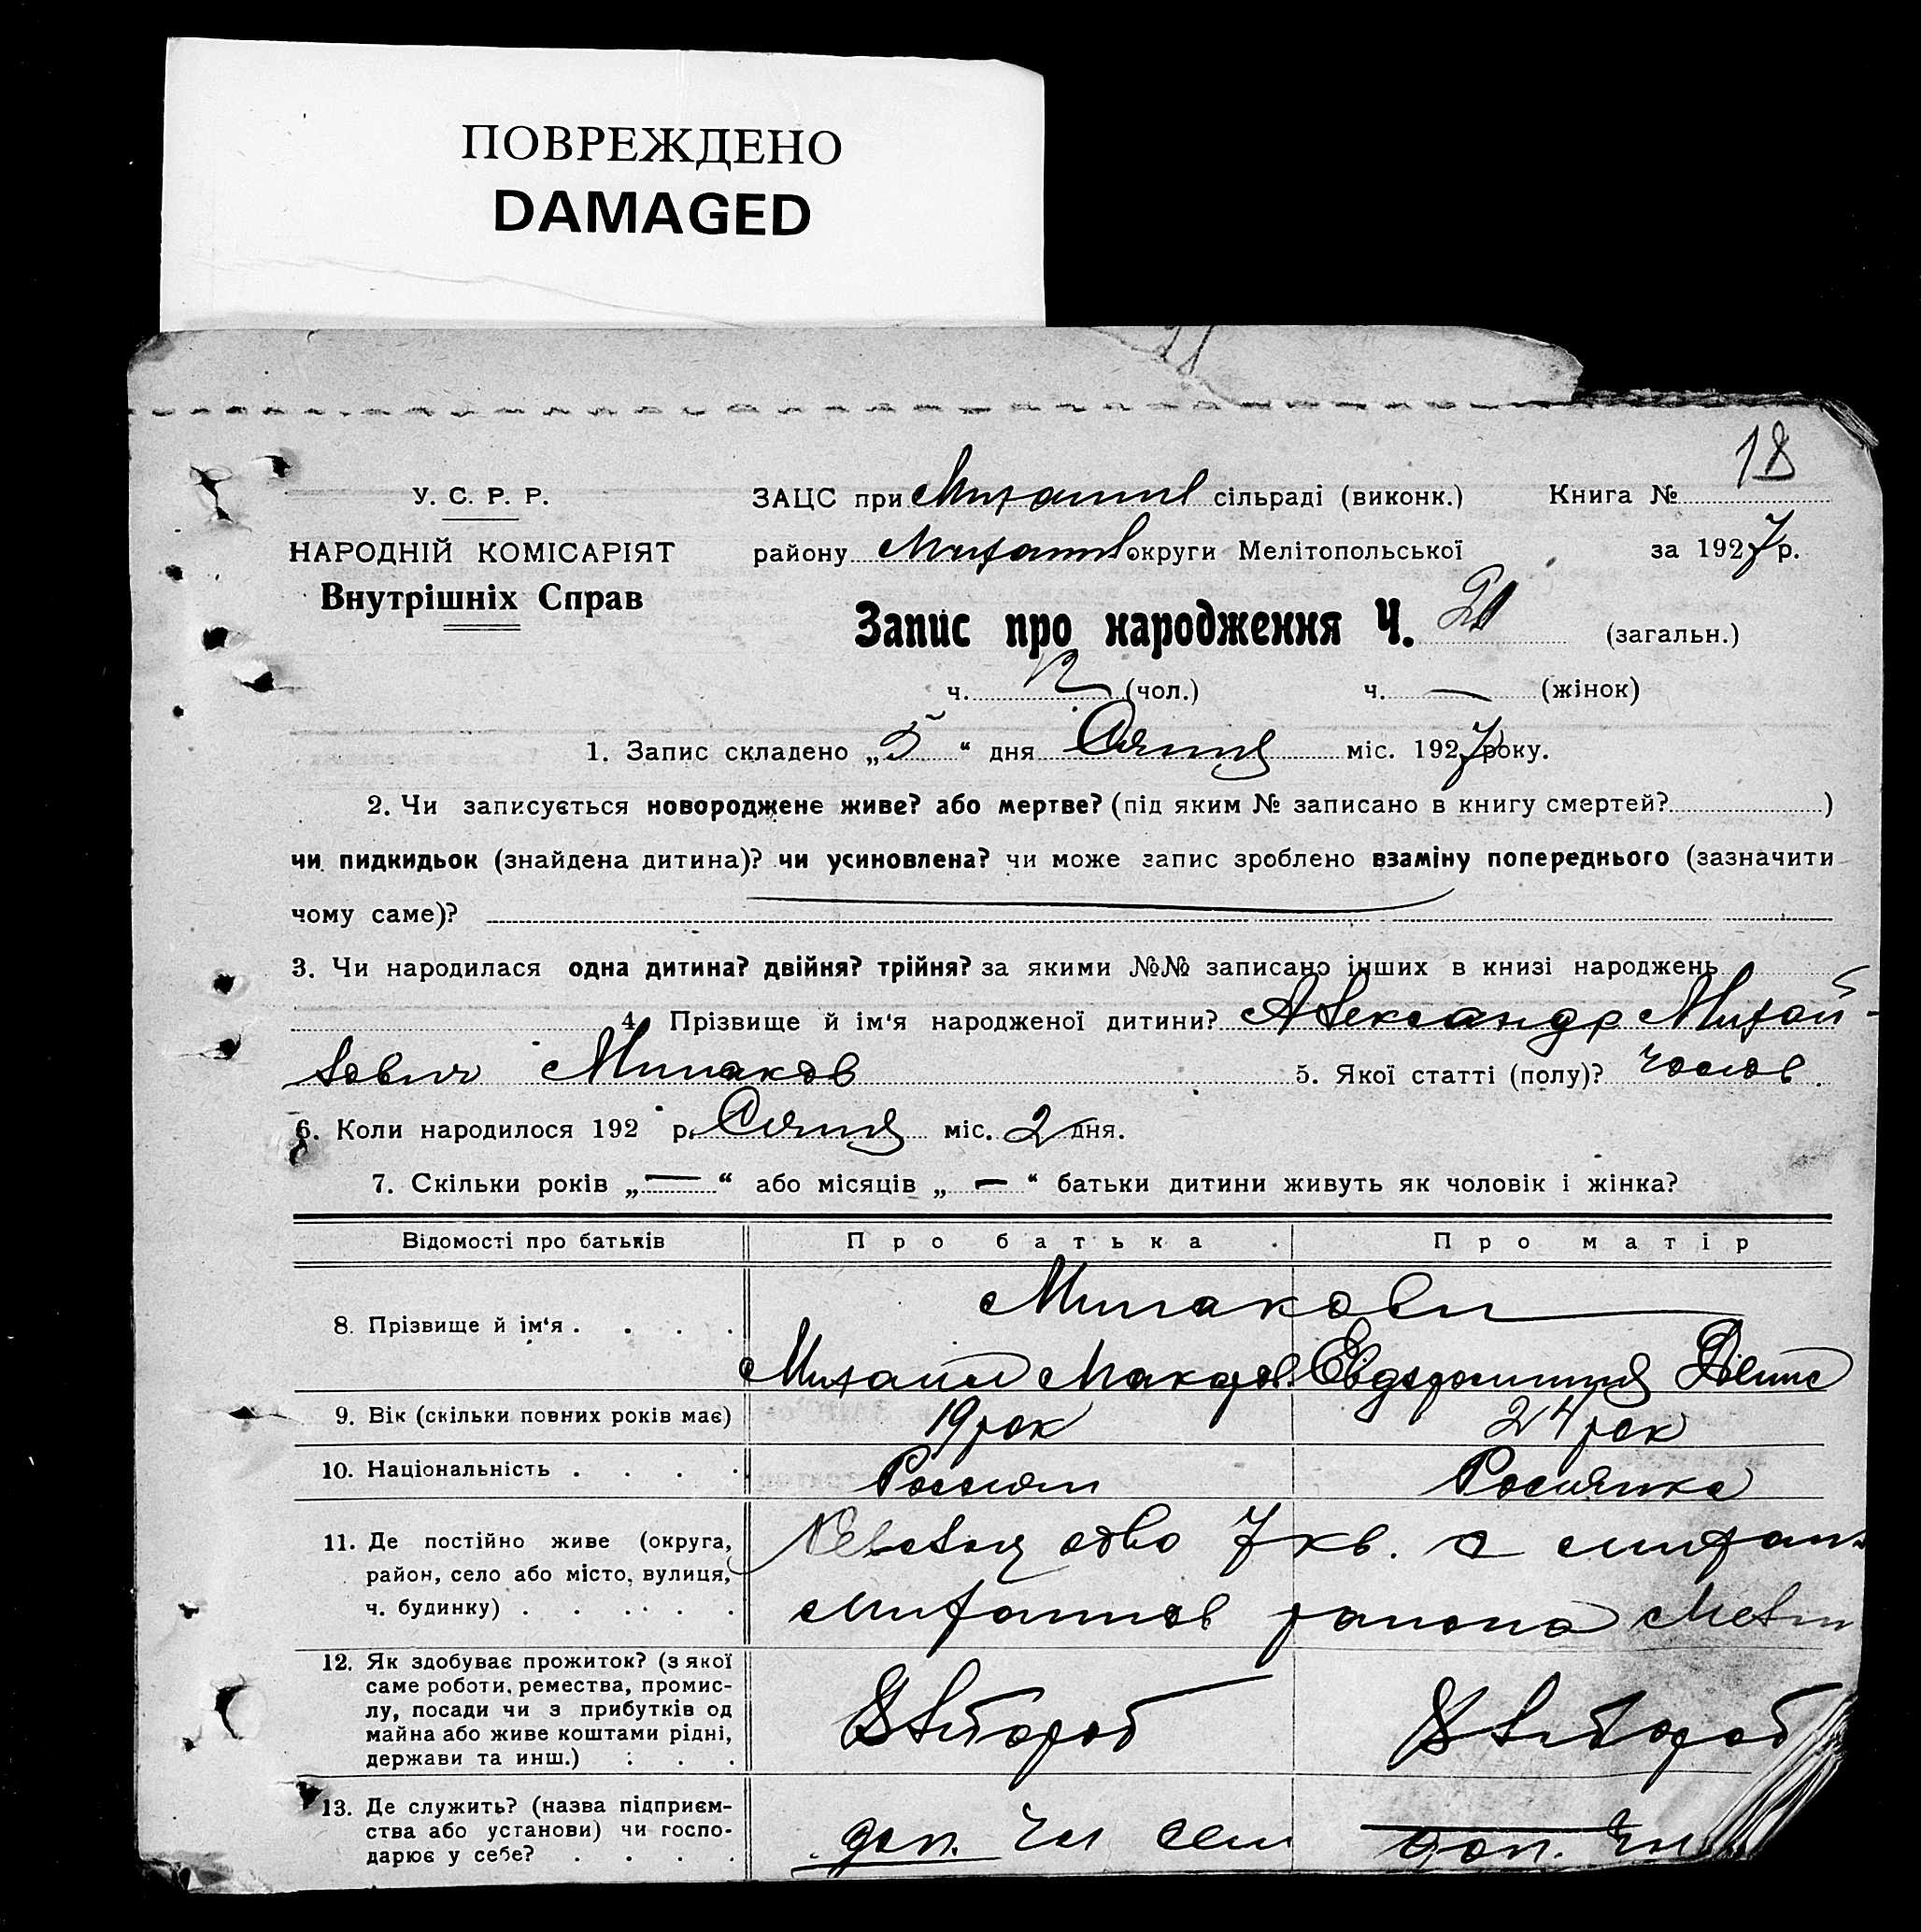 ПОВРЕЖДЕНО
DAMAGED
18
У. С. Р. Р.
ЗАЦС при сільраді (виконк.) Книга №
НАРОДНІЙ КОМІСАРІЯТ
району округи Мелітопольської за 1927 р.
Внутрішніх Справ
Запис про народження Ч. (загальн.)
ч. 12 (чол.) ч. — (жінок)
1. Запис складено „5“ дня Січня міс. 1927 року.
2. Чи записується новороджене живе? або мертве? (під яким № записано в книгу смертей? )
чи пидкидьок (знайдена дитина)? чи усиновлена? чи може запис зроблено взаміну попереднього (зазначити
чому саме)?
3. Чи народилася одна дитина? двійня? трійня? за якими №№ записано інших в книзі народжень
4. Прізвище й ім‘я народженої дитини? Александр Михай-
лович Минаков 5. Якої статті (полу)? чолов.
6. Коли народилося 192 р. Січня міс. 2 дня.
7. Скільки років „—“ або місяців „—“ батьки дитини живуть як чоловік і жінка?
Відомості про батьків Про батька Про матір
Минакови
8. Прізвище й ім‘я . . . .
Михаил Макаров.
9. Вік (скільки повних років має) 19 рок 24 рок
10. Національність . . . . Россиян Росиянка
11. Де постійно живе (округа, 7 кв. с
район, село або місто, вулиця,
ч. будинку) . . . . . района
12. Як здобуває прожиток? (з якої
саме роботи, ремества, промис-
лу, посади чи з прибутків од Хлібороб Хлібороб
майна або живе коштами рідні,
держави та инш.) : . .
13. Де служить? (назва підприєм-
ства або установи) чи госпо- доп. чл сем доп. чл
дарює у себе? . . . .